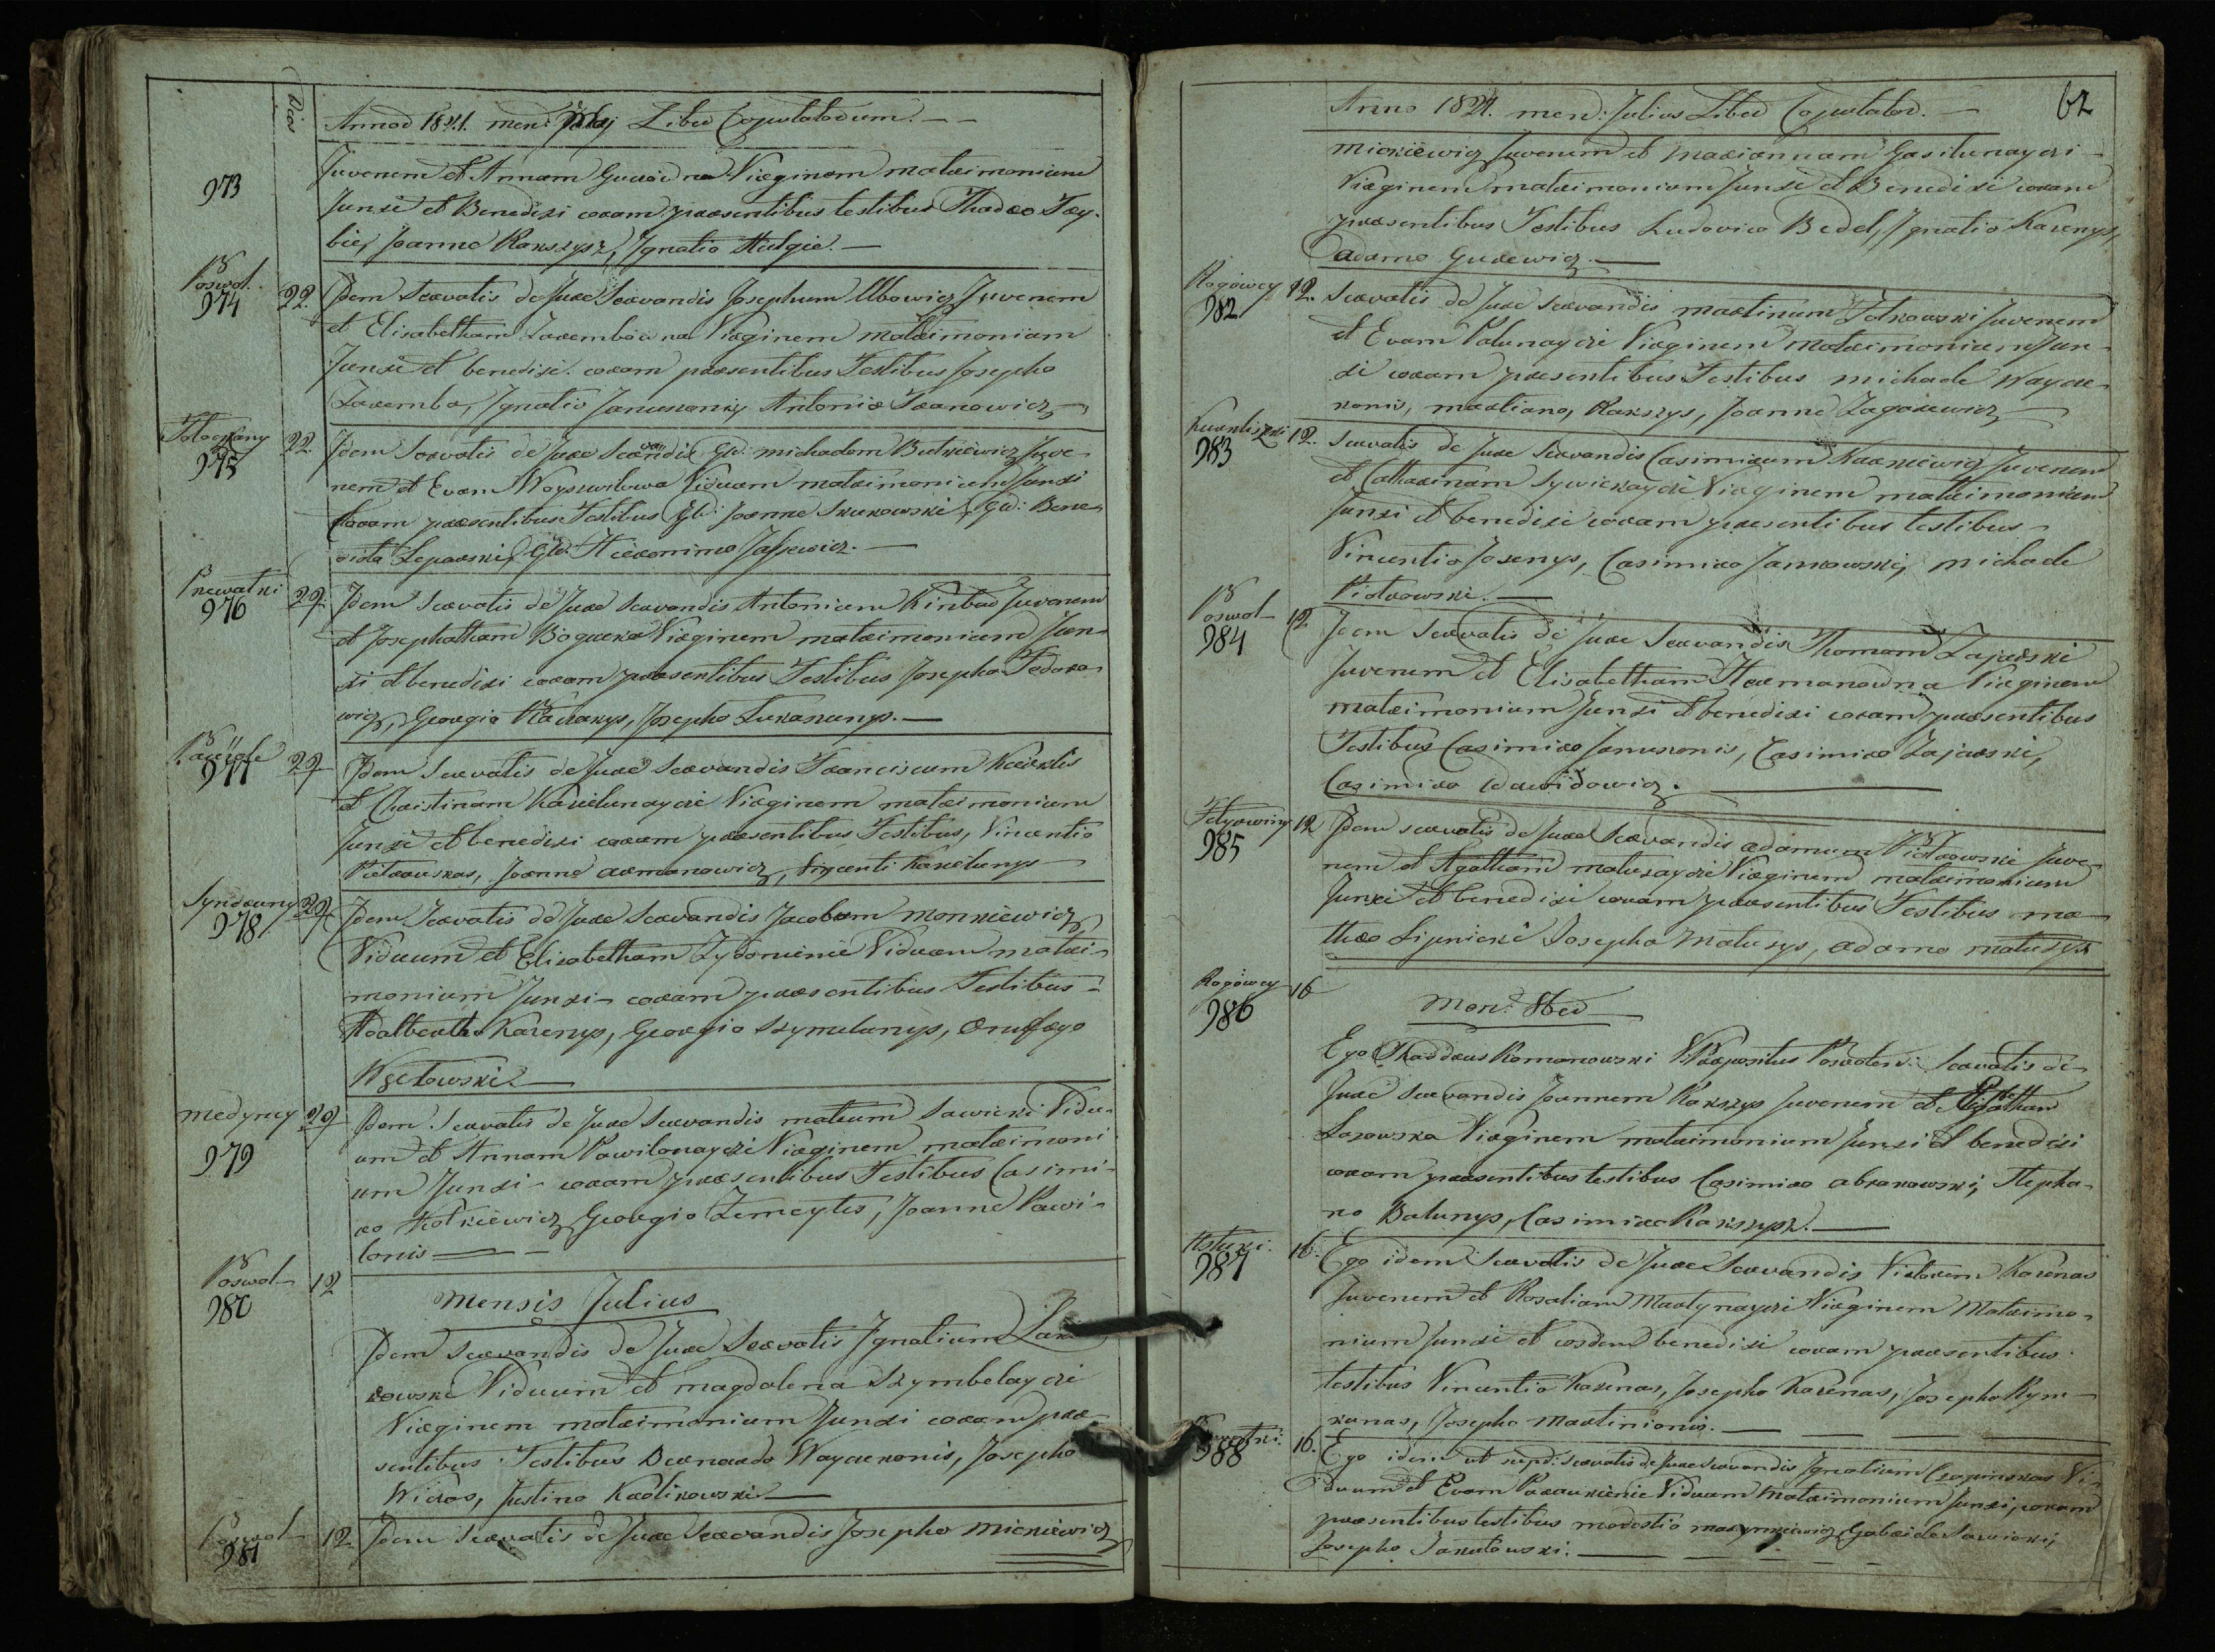 Dies
Annod 1821. men: Maj Liber Copulatorum.
973
Juvenem et Annam Gurówna Virginem matrimonium
Junxi et Benedixi coram praesentibus testibus Thadeo Try-
bie, Joanne Rakszysz, Ignatio Hulgie.
Poswol.
974
22
Idem Servatis de Jure Servandis Josephum Ubowicz Juvenem
et Elisabetham Zarembówna Virginem Matrimonium
Junxi et benedixi coram praesentibus Testibus Josepho
Zaremba, Ignatio Januszonis, Antonio Iwanowicz
975
22
Idem Servatis de Jure Servandis Gd: michaelem Butkiewicz Juve-
nem et Evam Woyszwilowa Viduam matrimonium Junxi
Coram praesentibus Testibus Gd: Joanne Skurowski, Gd: Bene-
dicto Leparski, Gd: Hieronimo Jassewicz.
976
22
Idem Servatis de Jure Servandis Antonium Kinbud Juvenem
et Josephatham Bogucka Virginem matrimonium Jun-
xi et benedixi coram praesentibus Testibus Josepho Fedoro-
wicz, Georgio Kaczanys, Josepho Lukaszunys.
977
22
Idem Servatis de Jure Servandis Franciscum
et Christinam Karielunayci Virginem matrimonium
Junxi et benedixi coram praesentibus Testibus, Vincentio
Pietrauskas, Joanne armanowicz, Vincenti Karielunys
978
22
Idem Servatis de Jure Servandis Jacobum Monkiewicz
Viduum et Elisabetham Zydonienie Viduam matri-
monium Junxi coram praesentibus Testibus
Adalbertho Karenys, Georgio Szymulanys, Onufrego
Węcłowski.
Medyncy
979
22
Idem Servatis de Jure Servandis matheum Sawicki Vidu-
um et Annam Pawilonayci Virginem matrimoni
um Junxi coram praesentibus Testibus Casimi-
ro Kotkiewicz, Georgio Zemeytis, Joanne Pawi-
lonis
Poswol
980
12
Mensis Julius
Idem Servandis de Jure Servatis Ignatium
Viduum et magdalena Szymbelayci
Virginem matrimonium Junxi coram prae-
sentibus Testibus Bernardo Wayczkonis, Josepho
Wicios, Justino Karlikowski
Poswol
981
12
Idem Servatis de Jure Servandis Josepho Mickiewicz
62
Anno 1821. men: Julius Liber Copulator.
Mickiewicz Juvenem et Mariannam Gasilunayci
Virginem matrimonium Junxi et Benedixi coram
praesentibus Testibus Ludovico Bedel, Ignatio Karenys,
Adamo Gurewicz.
Rogówcy
982
12.
Servatis de Jure Servandis Martinum Jotkowski Juvenem
et Evam Palunayci Virginem Matrimonium Jun-
xi coram praesentibus Testibus michaele Waycze-
konis, martiano, Rakszys, Joanne Zagorewicz
983
12.
Servatis de Jure Servandis Casimirum Karkiewicz Juvenem
et Catharinam Sywickayci Virginem matrimonium
Junxi et benedixi coram praesentibus testibus
Vincentio Josenys, Casimiro Jankowski, michaele
Piotrowski.
Poswol
984
12
Idem Servatis de Jure Servandis Thomam Zajarski
Juvenem et Elisabetham Hermanowna Virginem
matrimonium Junxi et benedixi coram praesentibus
Testibus Casimiro Januszonis, Casimiro Zajarski,
Casimiro Dawidowicz.
985
12
Idem servatis de Jure Servandis adamum Piotrowski Juve-
nem et Agatham matuzayci Virginem matrimonium
Junxi et benedixi coram praesentibus Testibus ma-
theo Lipnicki Josepho Matuzys, adamo matuzys
Rogówcy
986
16
Men: 8ber
Ego Thaddeus Romanowski Praepositus Poswolen: Servatis de
Jure Servandis Joannem Rakszys Juvenem et Agatham
Lozowska Virginem matrimonium Junxi et benedixi
coram praesentibus testibus Casimiro abramowski, Stepha-
no Balunys, Casimiro Rakszysz.
987
16.
Ego idem Servatis de Jure Servandis Victorem Karenas
Juvenem et Rosaliam Martynayci Virginem Matrimo-
nium Junxi et eosdem benedixi coram praesentibus
testibus Vincentio Karenas, Josepho Karenas, Josepho Rym-
kunas, Josepho Martinionis.
988
16.
Ego idem ut supd: servatis de Jure Servandis Ignatium Czapinskas Vi-
duum et Evam Paraukienie Viduam Matrimonium Junxi, coram
praesentibus testibus modestio marcynkiewicz, Gabriele Sawicki,
Josepho Jankowski.